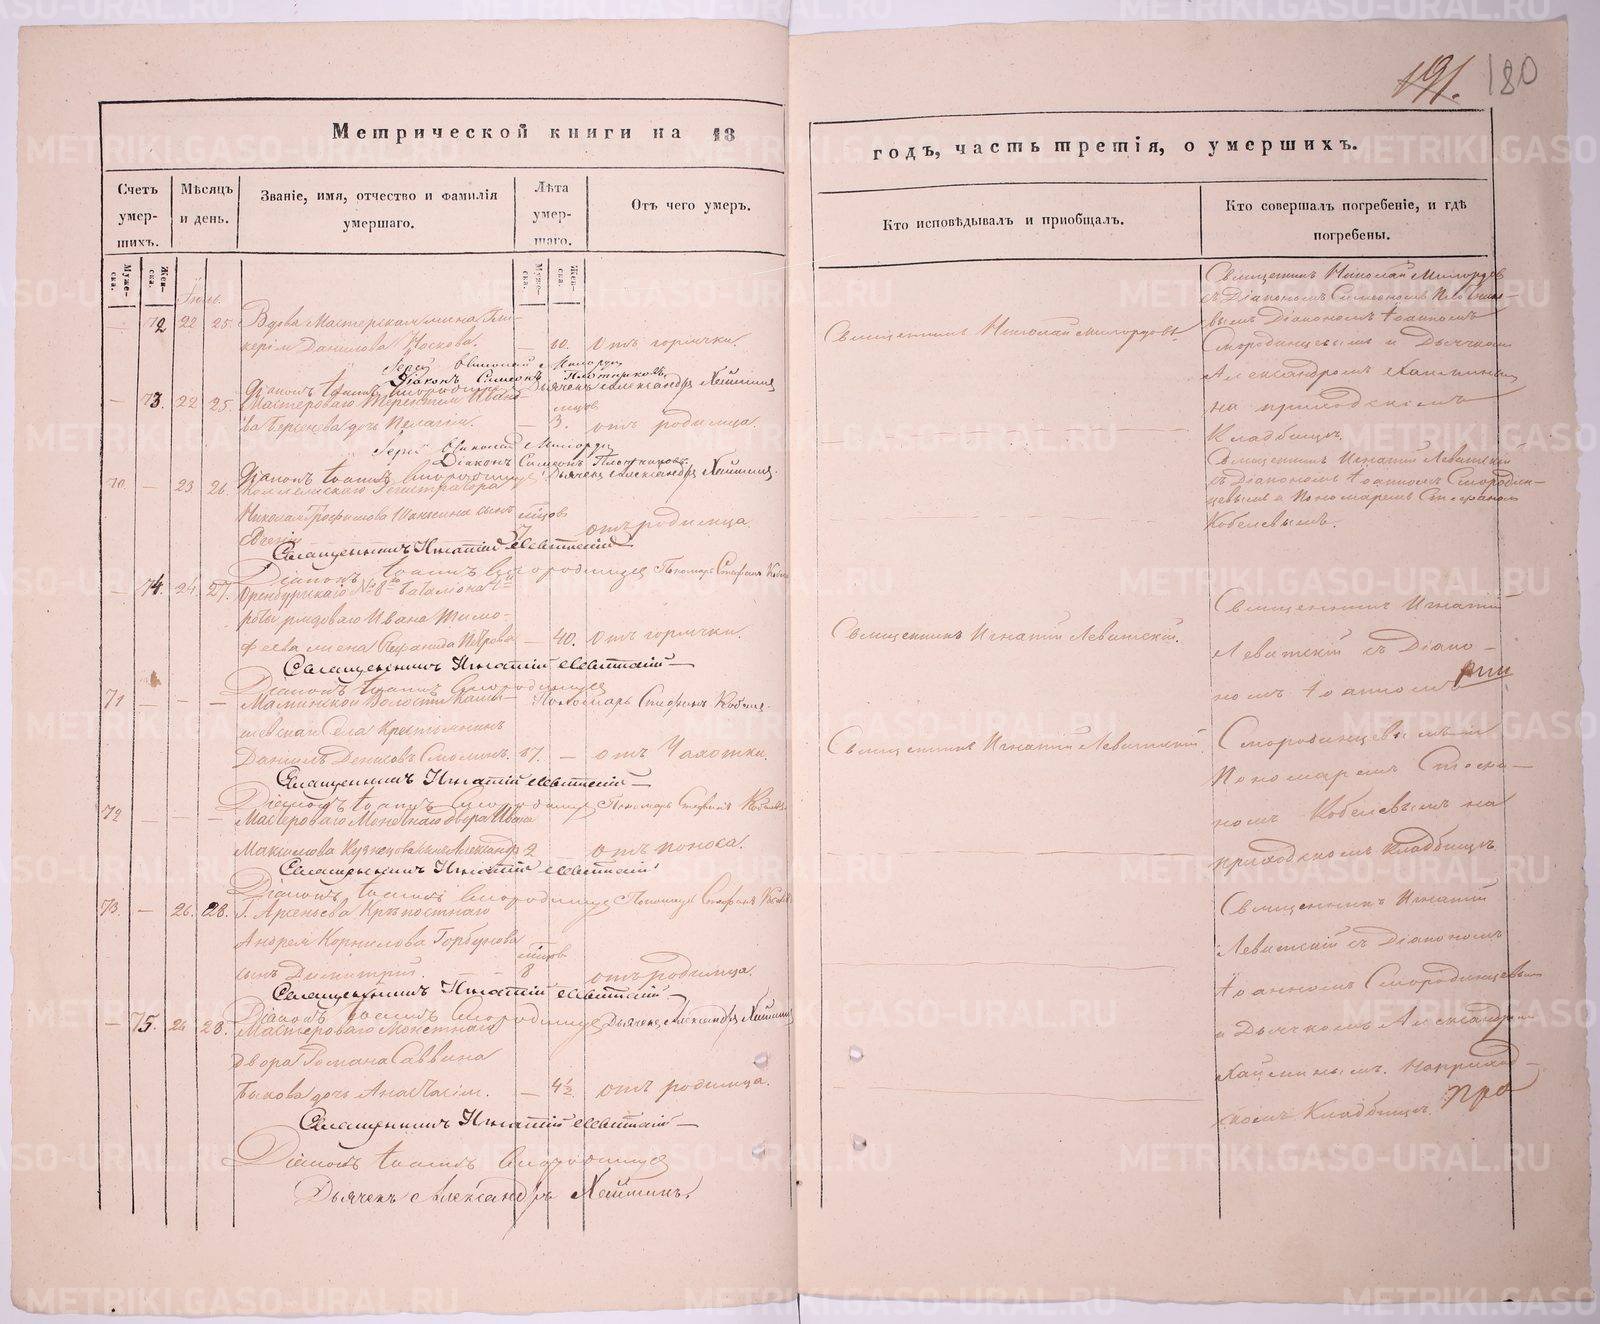 191. 180
Метрической книги на 18
годъ, часть третія, о умершихъ.
Счетъ умер-шихъ.
Мѣсяцъ и день.
Званіе, имя, отчество и фамилія умершаго.
Лѣта умер-шаго.
Отъ чего умеръ.
Кто исповѣдывалъ и приобщалъ.
Кто совершалъ погребеніе, и гдѣ погребены.
Муже-ска. Жен-ска. Муже-ска. Жен-ска.
72 22 25. Вдова Мастерская жена Гли-
керія Данилова Носкова. — 60. отъ горячки.
Священникъ Николай Милордовъ.
Священникъ Николай Милордовъ
съ Діакономъ Симеономъ Плотнико-
вымъ Діакономъ Іоанномъ
Смородинцевымъ и Дьячкомъ
Александромъ Хатминым
на приходскомъ
Кладбищѣ.
Іерей Николай Милордовъ
Діаконъ Симеонъ Плотниковъ
Діаконъ Іоаннъ Смородинцевъ Дьячекъ Александръ
— 73. 22 25. Мастероваго Терентія Ивано-
ва Берсенева дочь Пелагія. — 3. отъ родимца.
Іерей Николай Милордовъ
Діаконъ Симеонъ Плотниковъ.
Діаконъ Іоаннъ Смородинцевъ Дьячекъ Александръ
70. — 23 26. Коллежскаго Регистратора
Николая Трофимова сынъ
Евгеній 7 отъ родимца.
Священникъ Игнатій Левитскій
съ Діакономъ Іоанномъ Смородин-
цевымъ и Пономаремъ Стефаномъ
Кобелевымъ.
Священникъ Игнатій Левитскій
Діаконъ Іоаннъ Смородинцевъ Пономарь Стефанъ
— 74. 24. 27. Оренбургскаго № 8го Баталіона
роты рядоваго Ивана Тимо-
феева жена Петрова — 40. отъ горячки.
Священникъ Игнатій Левитскій.
Священникъ Игнатій
Левитскій съ Діако-
номъ Іоанномъ
Смородинцевымъ и
Пономаремъ Стефа-
номъ Кобелевымъ на
приходскомъ Кладбищѣ
Священникъ Игнатій Левитскій
Діаконъ Іоаннъ Смородинцевъ
Пономарь Стефанъ
71 — — — Маминской Волости
Села Крестьянинъ
Даніилъ Денисовъ Смолинъ. 37. — отъ Чахотки.
Священникъ Игнатій Левитскій.
Священникъ Игнатій Левитскій
Діаконъ Іоаннъ Смородинцевъ Пономарь Стефанъ
72 — — — Мастероваго Монетнаго двора Ивана
Максимова Кузнецова сынъ Александръ 2 отъ поноса.
Священникъ Игнатій Левитскій
Діаконъ Іоаннъ Смородинцевъ Пономарь Стефанъ
73. — 26. 28. г. Арсеньева Крѣпостнаго
Андрея Корнилова Горбунова
сынъ Димитрій. 8 отъ родимца.
Священникъ Игнатій
Левитскій съ Діакономъ
Іоанномъ Смородинцевым
и Дьячкомъ Александром
Приход-
скомъ Кладбищѣ.
Священникъ Игнатій Левитскій
Діаконъ Іоаннъ Смородинцевъ Дьячекъ Александръ
— 75. 26 28. Мастероваго Монетнаго
двора Романа Саввина
Быкова дочь Анастасія. — 4½ отъ родимца.
Священникъ Игнатій Левитскій
Діаконъ Іоаннъ Смородинцевъ
Дьячекъ Александръ
METRIKI.GASO-URAL.RU